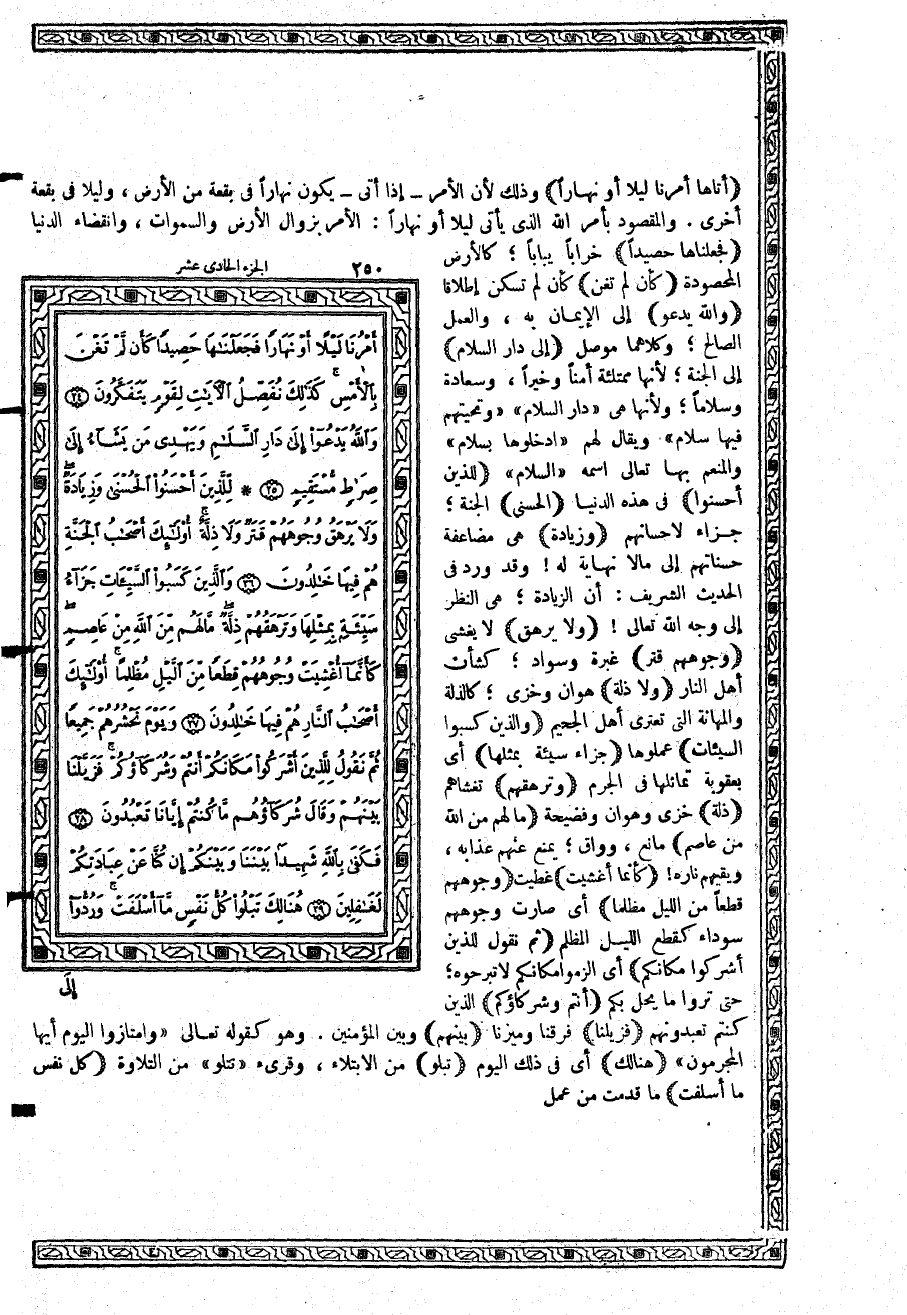 (أتاها أمرنا ليلا أو نهاراً) وذلك لأن الأمر ــ إذا أتى ــ يكون نهاراً فى بقعة من الأرض ، وليلا فى بقعة
أخرى . والمقصود بأمر الله الذى يأتى ليلا أو نهاراً : الأمر بزوال الأرض والسموات ، وانقضاء الدنيا
(فجعلناها حصيداً) خراباً يباباً ؛ كالأرض
المحصودة (كأن لم تغن) كأن لم تسكن إطلاقا
(والله يدعو) إلى الإيمان به ، والعمل
الصالح ؛ وكلاهما موصل (إلى دار السلام)
إلى الجنة ؛ لأنها ممتلئة أمناً وخيراً ، وسعادة
وسلاماً ؛ ولأنها هى «دار السلام» «وتحيتهم
فيها سلام» ويقال لهم «ادخلوها بسلام»
والمنعم بها تعالى اسمه «السلام» (للذين
أحسنوا) فى هذه الدنيا (الحسنى) الجنة ؛
جزاء لاحسانهم (وزيادة) هى مضاعفة
حسناتهم إلى مالا نهاية له ! وقد ورد فى
الحديث الشريف : أن الزيادة ؛ هى النظر
إلى وجه الله تعالى ! (ولا يرهق) لا يغشى
(وجوههم قتر) غبرة وسواد ؛ كشأن
أهل النار (ولا ذلة) هوان وخزى ؛ كالذلة
والمهانة التى تعترى أهل الجحيم (والذين كسبوا
السيئات) عملوها (جزاء سيئة بمثلها) أى
بعقوبة تماثلها فى الجرم (وترهقهم) تغشاهم
(ذلة) خزى وهوان وفضيحة (ما لهم من الله
من عاصم) مانع ، وواق ؛ يمنع عنهم عذابه ،
ويقيهم ناره! (كأنما أغشيت) غطيت (وجوههم
قطعاً من الليل مظلما) أى صارت وجوههم
سوداء كقطع الليل المظلم (ثم نقول للذين
أشركوا مكانكم) أى الزموا مكانكم لا تبرحوه؛
حتى تروا ما يحل بكم (أنتم وشركاؤكم) الذين
كنتم تعبدونهم (فزيلنا) فرقنا وميزنا (بينهم) وبين المؤمنين . وهو كقوله تعالى «وامتازوا اليوم أيها
المجرمون» (هنالك) أى فى ذلك اليوم (تبلو) من الابتلاء ، وقرىء «تتلو» من التلاوة (كل نفس
ما أسلفت) ما قدمت من عمل
٢٥٠ الجزء الحادى عشر
أَمْرُنَا لَيْلًا أَوْ نَهَارًا فَجَعَلْنَـٰهَا حَصِيدًا كَأَن لَّمْ تَغْنَ
بِالْأَمْسِ ۚ كَذَٰلِكَ نُفَصِّلُ الْآيَـٰتِ لِقَوْمٍ يَتَفَكَّرُونَ ۝٢٤
وَاللَّهُ يَدْعُوٓا۟ إِلَىٰ دَارِ السَّلَـٰمِ وَيَهْدِى مَن يَشَآءُ إِلَىٰ
صِرَٰطٍ مُّسْتَقِيمٍ ۝٢٥ * لِّلَّذِينَ أَحْسَنُوا۟ الْحُسْنَىٰ وَزِيَادَةٌ ۖ
وَلَا يَرْهَقُ وُجُوهَهُمْ قَتَرٌ وَلَا ذِلَّةٌ ۚ أُو۟لَـٰٓئِكَ أَصْحَـٰبُ الْجَنَّةِ
هُمْ فِيهَا خَـٰلِدُونَ ۝٢٦ وَالَّذِينَ كَسَبُوا۟ السَّيِّئَاتِ جَزَآءُ
سَيِّئَةٍ بِمِثْلِهَا وَتَرْهَقُهُمْ ذِلَّةٌ ۖ مَّا لَهُم مِّنَ اللَّهِ مِنْ عَاصِمٍ ۖ
كَأَنَّمَآ أُغْشِيَتْ وُجُوهُهُمْ قِطَعًا مِّنَ الَّيْلِ مُظْلِمًا ۚ أُو۟لَـٰٓئِكَ
أَصْحَـٰبُ النَّارِ هُمْ فِيهَا خَـٰلِدُونَ ۝٢٧ وَيَوْمَ نَحْشُرُهُمْ جَمِيعًا
ثُمَّ نَقُولُ لِلَّذِينَ أَشْرَكُوا۟ مَكَانَكُمْ أَنتُمْ وَشُرَكَآؤُكُمْ ۚ فَزَيَّلْنَا
بَيْنَهُمْ وَقَالَ شُرَكَآؤُهُم مَّا كُنتُمْ إِيَّانَا تَعْبُدُونَ ۝٢٨
فَكَفَىٰ بِاللَّهِ شَهِيدًا بَيْنَنَا وَبَيْنَكُمْ إِن كُنَّا عَنْ عِبَادَتِكُمْ
لَغَـٰفِلِينَ ۝٢٩ هُنَالِكَ تَبْلُوا۟ كُلُّ نَفْسٍ مَّآ أَسْلَفَتْ ۚ وَرُدُّوٓا۟
إِلَى